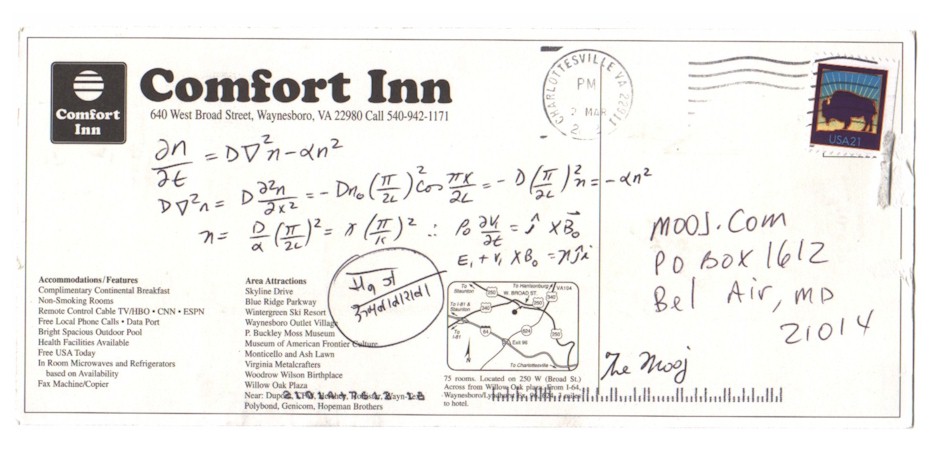 Comfort Inn
Comfort
Inn
640 West Broad Street, Waynesboro, VA 22980 Call 540-942-1171
CHARLOTTESVILLE VA
PM
MAR
USA21
∂n/∂t = D∇²n - αn²
D∇²n = D ∂²n/∂x² = - Dn₀ (π/2L)² cos πx/2L = - D (π/2L)² n = - αn²
n = D/α (π/2L)² = γ (π/κ)² ∴ ρ₀ ∂V₁/∂t = ĵ × B₀
E₁ + V₁ × B₀ = nĵi
MOOJ.COM
PO BOX 1612
Bel Air, MD
21014
The Mooj
Accommodations/Features
Complimentary Continental Breakfast
Non-Smoking Rooms
Remote Control Cable TV/HBO • CNN • ESPN
Free Local Phone Calls • Data Port
Bright Spacious Outdoor Pool
Health Facilities Available
Free USA Today
In Room Microwaves and Refrigerators
based on Availability
Fax Machine/Copier
Area Attractions
Skyline Drive
Blue Ridge Parkway
Wintergreen Ski Resort
Waynesboro Outlet Village
P. Buckley Moss Museum
Museum of American Frontier Culture
Monticello and Ash Lawn
Virginia Metalcrafters
Woodrow Wilson Birthplace
Willow Oak Plaza
Near:
Polybond, Genicom, Hopeman Brothers
To Staunton
To Harrisonburg
VA104
W. BROAD ST.
250
340
To I-81 & Staunton
340
250
340
To I-81
64
624
250
Exit 96
N
To Charlottesville
75 rooms. Located on 250 W (Broad St.)
Across from Willow Oak plaza. From I-64,
to hotel.